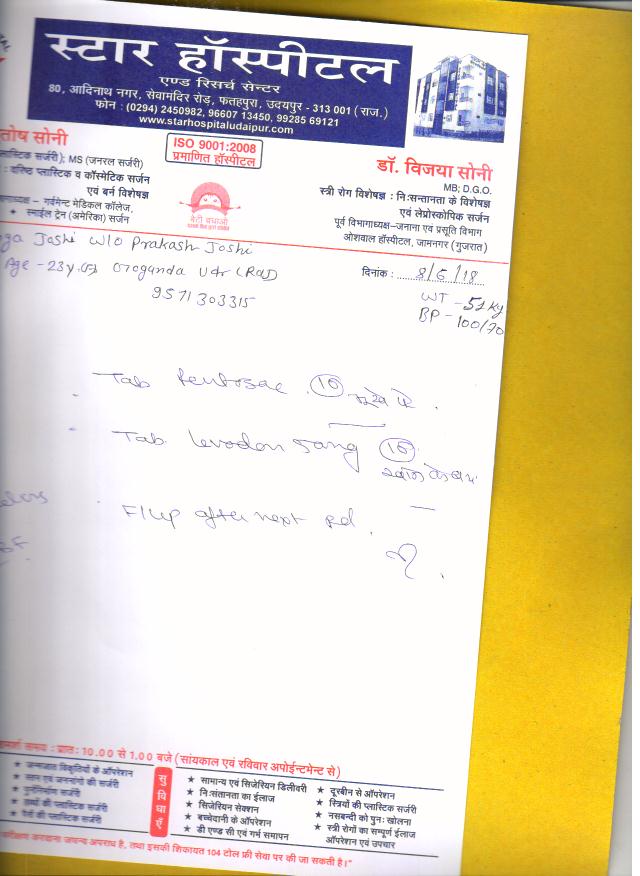 स्टार हॉस्पीटल
एण्ड रिसर्च सेन्टर
80, आदिनाथ नगर, सेवामंदिर रोड़, फतहपुरा, उदयपुर - 313 001 (राज.)
फोन : (0294) 2450982, 96607 13450, 99285 69121
www.starhospitaludaipur.com
तोष सोनी
लास्टिक सर्जरी); MS (जनरल सर्जरी)
: वरिष्ठ प्लास्टिक व कॉस्मेटिक सर्जन
एवं बर्न विशेषज्ञ
गाध्यक्ष – गर्वमेन्ट मेडिकल कॉलेज,
★ स्माईल ट्रेन (अमेरिका) सर्जन
ISO 9001:2008
प्रमाणित हॉस्पीटल
बेटी बचाओ
डॉ. विजया सोनी
MB; D.G.O.
स्त्री रोग विशेषज्ञ : नि:सन्तानता के विशेषज्ञ
एवं लेप्रोस्कोपिक सर्जन
पूर्व विभागाध्यक्ष–जनाना एवं प्रसूति विभाग
ओशवाल हॉस्पीटल, जामनगर (गुजरात)
Joshi W/O Prakash Joshi
Age - 23y. Oroganda Udr (Raj)
9571303315
दिनांक : 8/6/18
WT - 51 kg
BP - 100/70
Tab (10)
Tab (10)
F/up after next
परामर्श समय : प्रात: 10.00 से 1.00 बजे (सांयकाल एवं रविवार अपोईन्टमेन्ट से)
★ जन्मजात विकृतियों के ऑपरेशन
★ स्तन एवं जननांगो की सर्जरी
★ पुर्ननिर्माण सर्जरी
★ हाथों की प्लास्टिक सर्जरी
★ चेहरे की प्लास्टिक सर्जरी
सुविधाएँ
★ सामान्य एवं सिजेरियन डिलीवरी
★ नि:संतानता का ईलाज
★ सिजेरियन सेक्शन
★ बच्चेदानी के ऑपरेशन
★ डी एण्ड सी एवं गर्भ समापन
★ दूरबीन से ऑपरेशन
★ स्त्रियों की प्लास्टिक सर्जरी
★ नसबन्दी को पुन: खोलना
★ स्त्री रोगों का सम्पूर्ण ईलाज
ऑपरेशन एवं उपचार
परीक्षण करवाना जघन्य अपराध है, तथा इसकी शिकायत 104 टोल फ्री सेवा पर की जा सकती है।"